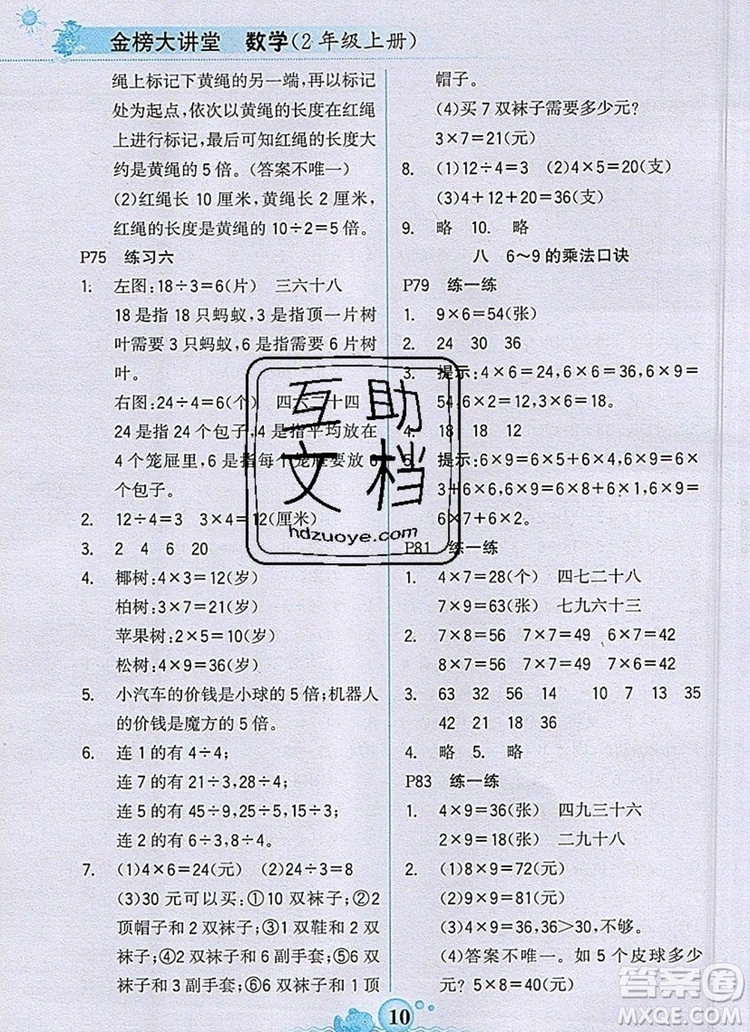 金榜大讲堂 数学(2年级上册)
绳上标记下黄绳的另一端,再以标记
处为起点,依次以黄绳的长度在红绳
上进行标记,最后可知红绳的长度大
约是黄绳的5倍。(答案不唯一)
(2)红绳长10厘米,黄绳长2厘米,
红绳的长度是黄绳的10÷2=5倍。
P75 练习六
1. 左图:18÷3=6(片) 三六十八
18是指18只蚂蚁,3是指顶一片树
叶需要3只蚂蚁,6是指需要6片树
叶。
右图:24÷4=6(个) 四六二十四
24是指24个包子,4是指平均放在
4个笼屉里,6是指每个笼屉要放6
个包子。
2. 12÷4=3 3×4=12(厘米)
3. 2 4 6 20
4. 椰树:4×3=12(岁)
柏树:4×3=12(岁)
苹果树:4×3=12(岁)
松树:2×5=10(岁)
5. 小汽车的价钱是小球的5倍;机器人
的价钱是魔方的5倍。
6. 连1的有4÷4;
连7的有21÷3,28÷4;
连5的有45÷9,25÷5,15÷3;
连2的有12÷6,8÷4。
7. (1)4×6=24(元) (2)24÷3=8
(3)30元可以买:①10双袜子;②2
顶帽子和2双袜子;③1双鞋和2双
袜子;④2双袜子和6副手套;⑤5双
袜子和3副手套;⑥6双袜子和1顶
帽子。
(4)买7双袜子需要多少元?
3×7=21(元)
8. (1)12÷4=3 (2)4×5=20(支)
(3)4+12+20=36(支)
9. 略 10. 略
八 6~9的乘法口诀
P79 练一练
1. 9×6=54(张)
2. 24 30 36
3. 提示:4×6=24,6×6=36,6×9=
54,6×2=12,6×10=60,6×3=18。
4. 18 18 12
提示:6×9=6×5+6×4,6×9=6×
3+6×6,6×9=6×8+6,6×9=
6×7+6×2。
P81 练一练
1. 4×7=28(个) 四七二十八
7×9=63(张) 七九六十三
2. 7×8=56 7×7=49 6×7=42
8×7=56 7×7=49 7×6=42
3. 63 32 56 14 10 7 63 35
42 21 18 36
4. 略 5. 略
P83 练一练
1. 4×9=36(张) 四九三十六
2×9=18(张) 二九十八
2. (1)8×9=72(元)
(2)9×9=81(元)
(3)4×9=36(元),36>30,不够。
(4)答案不唯一。如5个皮球多少
元? 5×8=40(元)
10
互助
文档
hdzuoye.com
答案圈
MXQE.COM